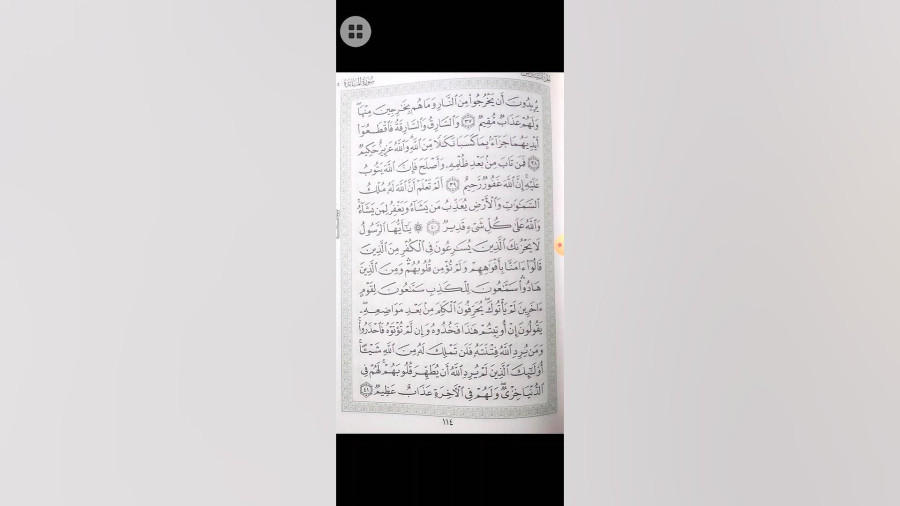 سُورَةُ المَائِدَةِ
يُرِيدُونَ أَن يَخْرُجُوا۟ مِنَ ٱلنَّارِ وَمَا هُم بِخَٰرِجِينَ مِنْهَا ۖ
وَلَهُمْ عَذَابٌ مُّقِيمٌ ٣٧ وَٱلسَّارِقُ وَٱلسَّارِقَةُ فَٱقْطَعُوٓا۟
أَيْدِيَهُمَا جَزَآءًۢ بِمَا كَسَبَا نَكَٰلًا مِّنَ ٱللَّهِ ۗ وَٱللَّهُ عَزِيزٌ حَكِيمٌ
٣٨ فَمَن تَابَ مِنۢ بَعْدِ ظُلْمِهِۦ وَأَصْلَحَ فَإِنَّ ٱللَّهَ يَتُوبُ
عَلَيْهِ ۗ إِنَّ ٱللَّهَ غَفُورٌ رَّحِيمٌ ٣٩ أَلَمْ تَعْلَمْ أَنَّ ٱللَّهَ لَهُۥ مُلْكُ
ٱلسَّمَٰوَٰتِ وَٱلْأَرْضِ يُعَذِّبُ مَن يَشَآءُ وَيَغْفِرُ لِمَن يَشَآءُ ۗ
وَٱللَّهُ عَلَىٰ كُلِّ شَىْءٍ قَدِيرٌ ٤٠ ۞ يَٰٓأَيُّهَا ٱلرَّسُولُ
لَا يَحْزُنكَ ٱلَّذِينَ يُسَٰرِعُونَ فِى ٱلْكُفْرِ مِنَ ٱلَّذِينَ
قَالُوٓا۟ ءَامَنَّا بِأَفْوَٰهِهِمْ وَلَمْ تُؤْمِن قُلُوبُهُمْ ۛ وَمِنَ ٱلَّذِينَ
هَادُوا۟ ۛ سَمَّٰعُونَ لِلْكَذِبِ سَمَّٰعُونَ لِقَوْمٍ
ءَاخَرِينَ لَمْ يَأْتُوكَ ۖ يُحَرِّفُونَ ٱلْكَلِمَ مِنۢ بَعْدِ مَوَاضِعِهِۦ ۖ
يَقُولُونَ إِنْ أُوتِيتُمْ هَٰذَا فَخُذُوهُ وَإِن لَّمْ تُؤْتَوْهُ فَٱحْذَرُوا۟ ۚ
وَمَن يُرِدِ ٱللَّهُ فِتْنَتَهُۥ فَلَن تَمْلِكَ لَهُۥ مِنَ ٱللَّهِ شَيْـًٔا ۚ
أُو۟لَٰٓئِكَ ٱلَّذِينَ لَمْ يُرِدِ ٱللَّهُ أَن يُطَهِّرَ قُلُوبَهُمْ ۚ لَهُمْ فِى
ٱلدُّنْيَا خِزْىٌ ۖ وَلَهُمْ فِى ٱلْءَاخِرَةِ عَذَابٌ عَظِيمٌ ٤١
١١٤